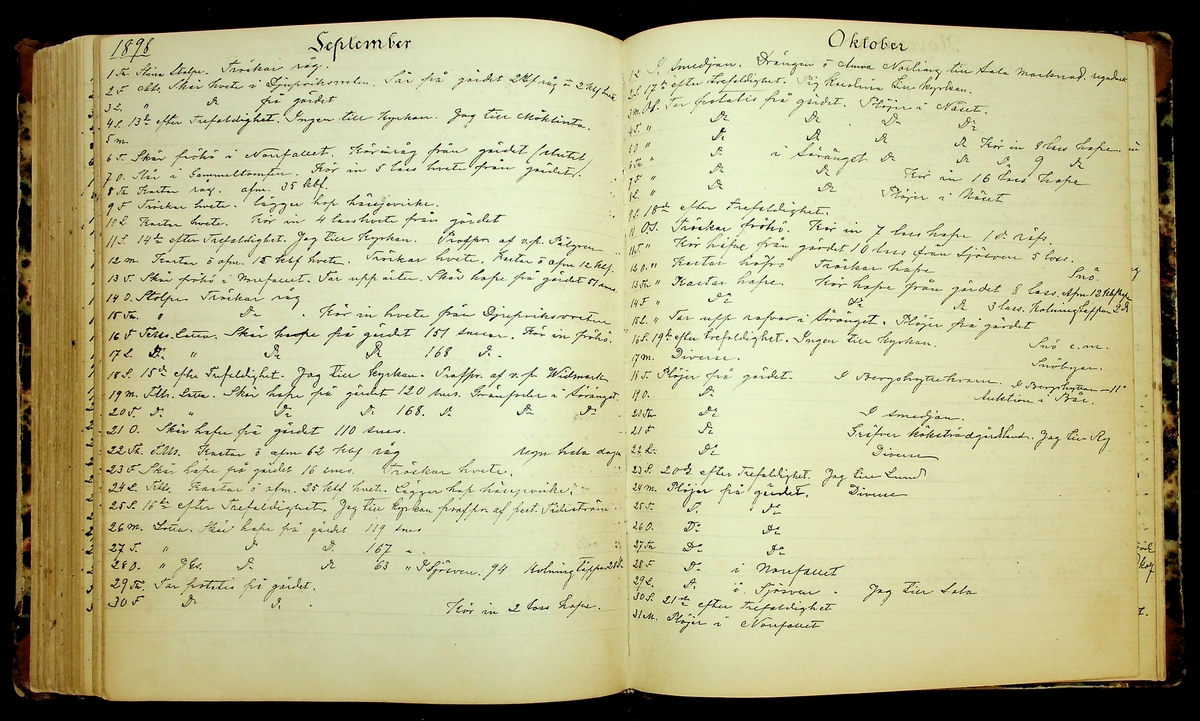 1898
September
1 To. Stina Stolpe. Tröskar råg.
2 F. Skär hvete i Djupviksvreten. Sår frå gärdet 2 kbf råg
3 L. " Do frå gärdet
4 S. 13de efter Trefaldighet. Ingen till Kyrkan. Jag till Möklinta.
5 m.
6 T. Skär fröhö i Norrfallet. Kör in råg från gärdet (slutet)
7 O. Slår i Gammeltomten. Kör in 5 lass hvete från gärdet.
8 To. Kastar råg. afm. 35 kbf.
9 F. Tröskar hvete. Lägger hop hässjevirke.
10 L. Kastar hvete. Kör in 4 lass hvete från gärdet
11 S. 14de efter Trefaldighet. Jag till Kyrkan. Profpr. af v.p.
12 m. Kastar o afm. 15 kbf hvete. Tröskar hvete. Kastar o afm 12 kbf.
13 T. Skär fröhö i Norrfallet. Tar upp ärter. Skär hafre på gärdet 51
14 O. Stolpe Tröskar råg
15 To. " Do. Kör in hvete från Djupviksvreten
16 F. Lotta. Skär hafre på gärdet 151 snes. Kör in fröhö.
17 L. Do " Do Do 168 Do.
18 S. 15de efter Trefaldighet. Jag till Kyrkan. Profpr. af v.p. Widmark
19 m. Lotta. Skär hafre på gärdet 120 snes. Grönfoder i Söränget.
20 T. Do. " Do Do 168. Do Do Do
21 O. Skär hafre på gärdet 110 snes.
22 To. Kastar o afm 62 kbf råg regn hela dagen
23 F. Skär hafre på gärdet 16 snes. Tröskar hvete.
24 L. Kastar o afm. 25 kbf hvete. Lägger hop hässjevirke.
25 S. 16de efter Trefaldighet. Jag till Kyrkan profpr. af past. Tideström
26 m. Lotta. Skär hafre på gärdet 119 snes
27 T. " Do Do 167 "
28 O. " Do Do 63 " I Sjösven. 94 Kolning
29 To. Tar potatis på gärdet.
30 F. Do Do. Kör in 2 lass hafre.
Oktober
1 L. I Smedjan. Drängen o Anna Norling till Sala marknad.
2 S. 17de efter Trefaldighet. Pig Karolina till Kyrkan.
3 m. Tar potatis frå gärdet. Plöjer i Näset.
4 T. " Do Do Do Do
5 O. " Do Do Do Kör in 8 lass hafre
6 To. " Do i Söränget Do Do Do 9 Do
7 F. " Do Do Kör in 16 lass hafre
8 L. " Do Do Plöjer i Näset
9 S. 18de efter Trefaldighet.
Tröskar fröhö. Kör in 7 lass hafre 1 Do
11 T. " Kör hafre från gärdet 10 lass från Sjösven 5 lass.
12 O. " Kastar hafre Tröskar hafre Snö.
13 To. " Kastar hafre. Kör hafre från gärdet 8 lass. Afm 12 kbf
14 F. " Do Do Do 3 lass. Kolning
15 L. " Tar upp rofvor i Söränget. Plöjer frå gärdet
16 S. 19de efter Trefaldighet. Ingen till Kyrkan. Snö e.m.
17 m. Diverse. Snöbyar.
18 T. Plöjer frå gärdet. I Bergshyttekvarn. I Bergshyttan – 11°
19 O. Do Auktion i
20 To. Do I Smedjan.
21 F. Do Gräfver köksträdgårdsland. Jag till
22 L. Do Diverse
23 S. 20de efter Trefaldighet. Jag till Lund
24 m. Plöjer frå gärdet. Diverse
25 T. Do Do
26 O. Do Do
27 To. Do Do
28 F. Do i Norrfallet
29 L. Do i Sjösven. Jag till Sala
30 S. 21ste efter Trefaldighet
31 M. Plöjer i Norrfallet